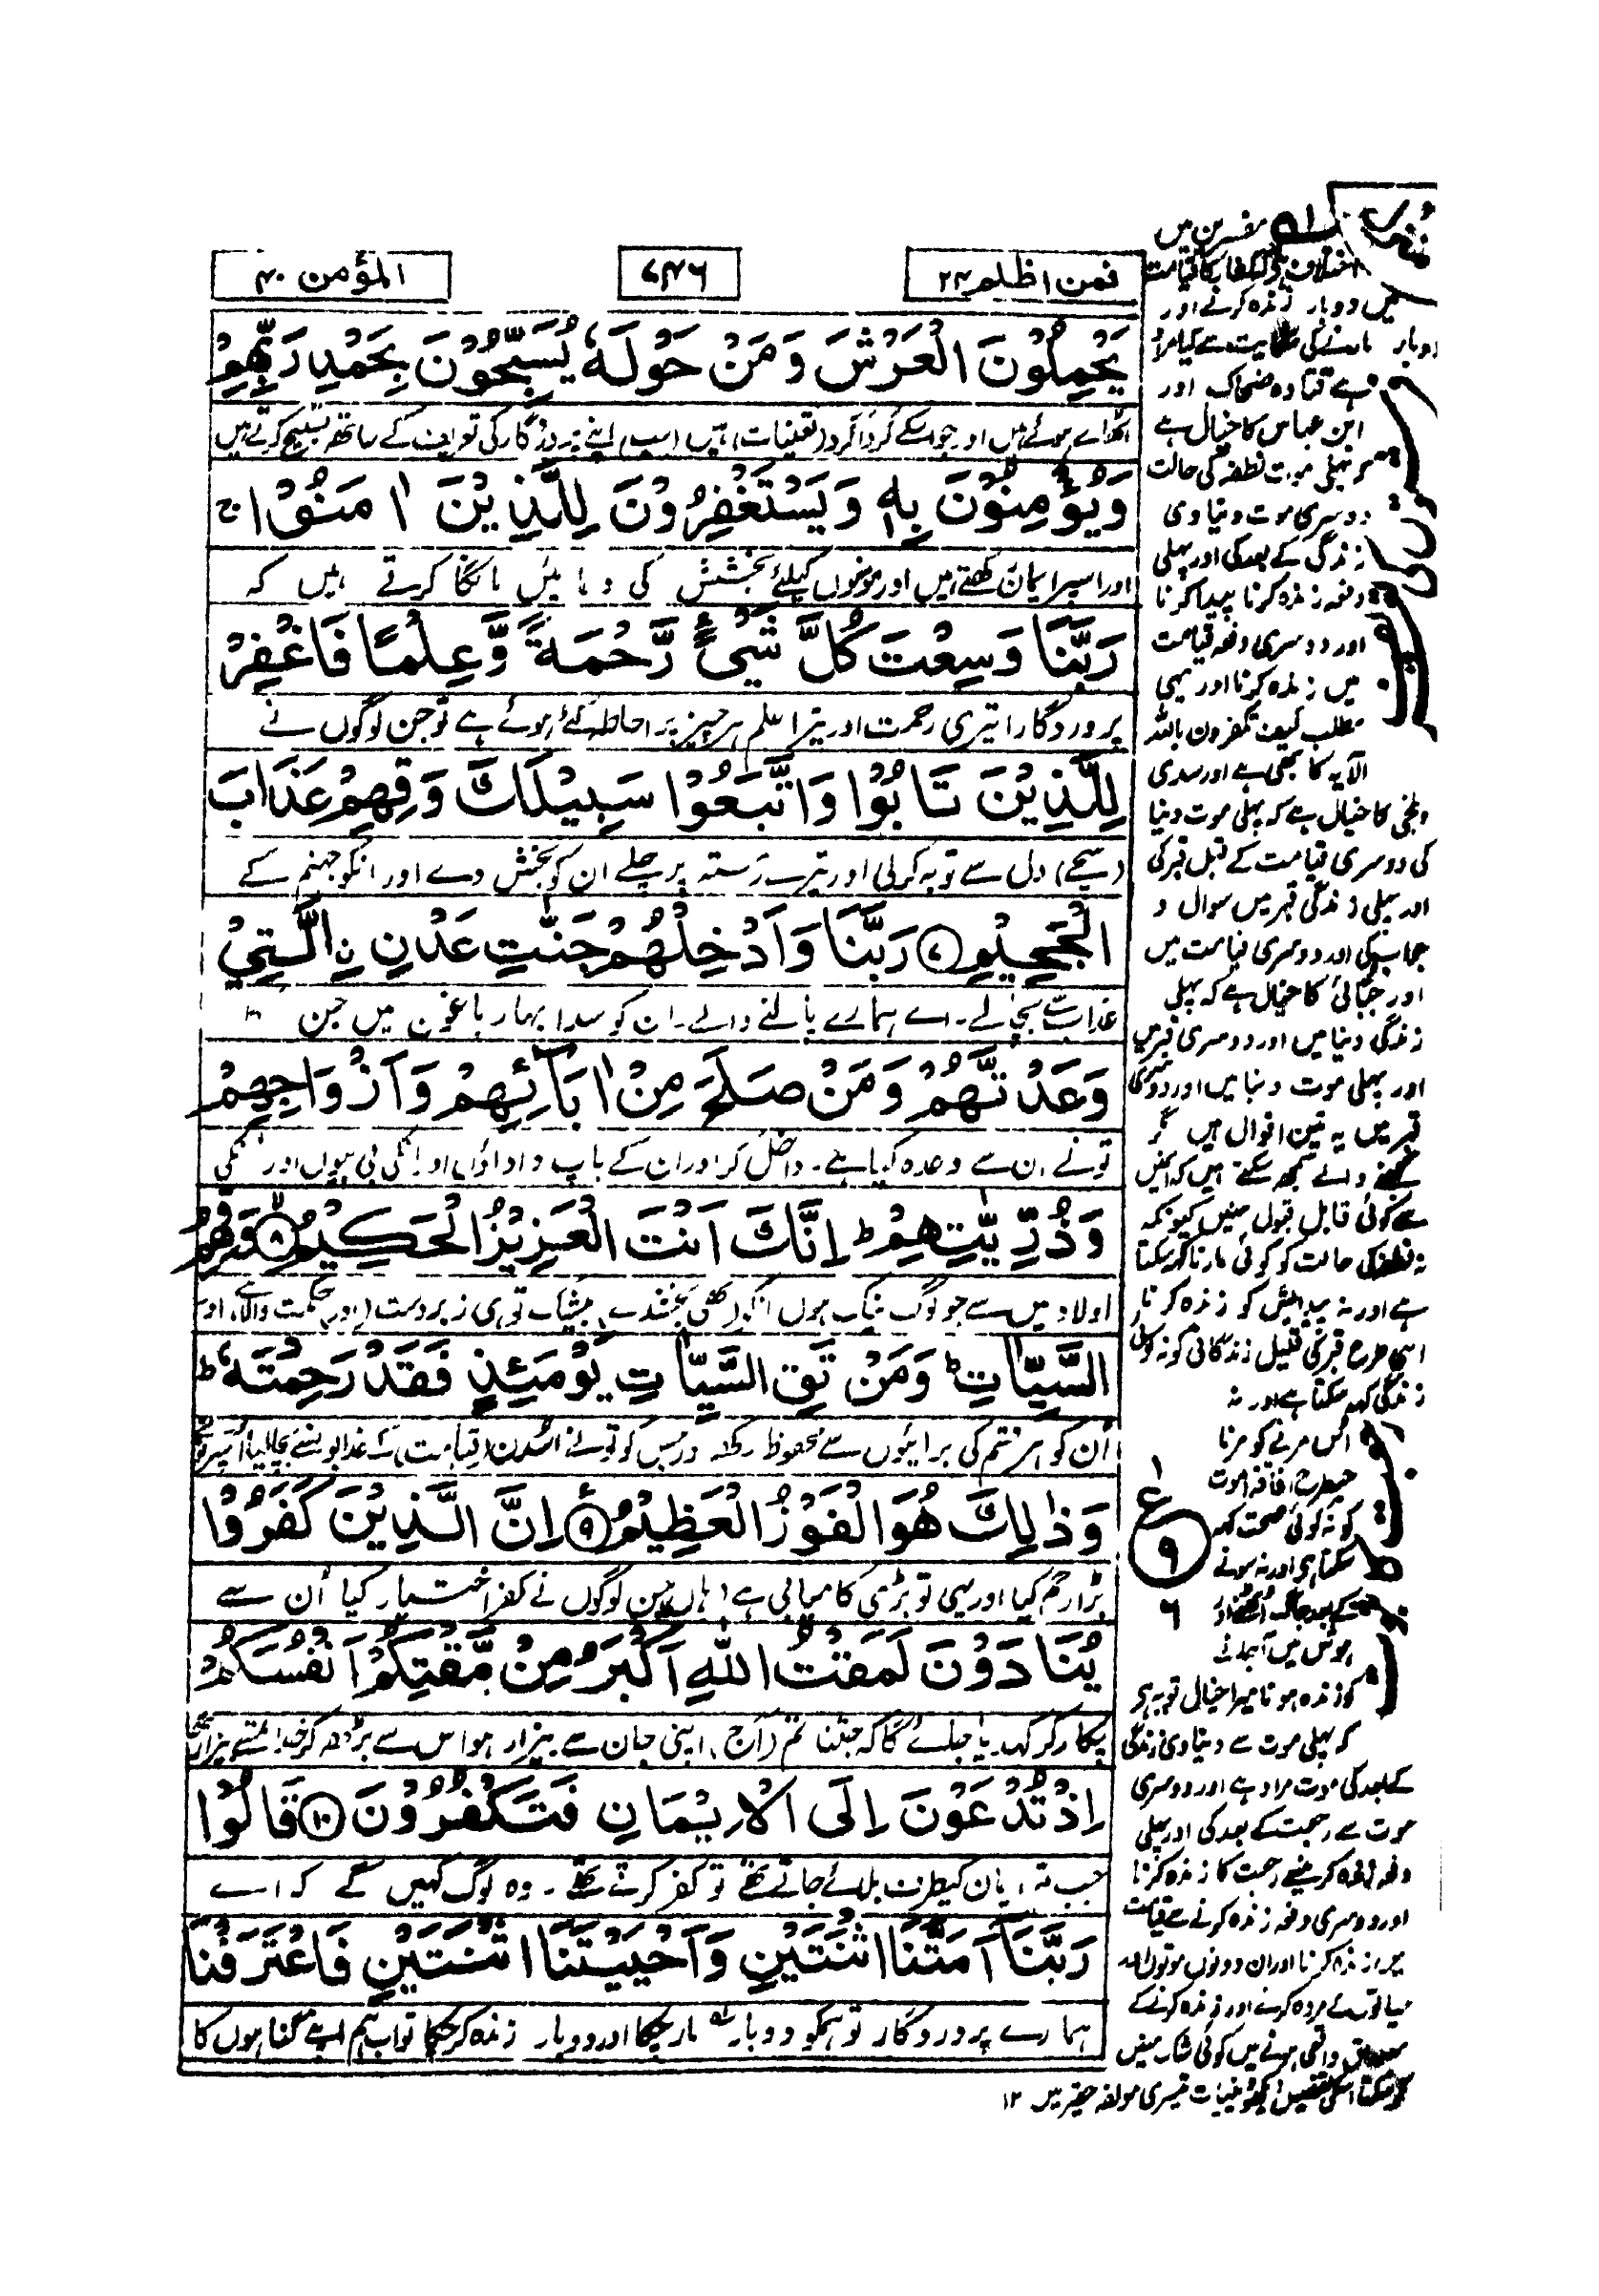 فمن اظلم ۲۴
۷۴۶
المؤمن ۴۰
يَحْمِلُوْنَ الْعَرْشَ وَمَنْ حَوْلَهٗ يُسَبِّحُوْنَ بِحَمْدِ رَبِّهِمْ
اٹھائے ہوئے ہیں اور جو اسکے گردا گرد (تعینات) ہیں (سب) اپنے پروردگار کی تعریف کے ساتھ تسبیح کرتے ہیں
وَيُؤْمِنُوْنَ بِهٖ وَيَسْتَغْفِرُوْنَ لِلَّذِيْنَ اٰمَنُوْا ج
اور اسپر ایمان رکھتے ہیں اور مومنوں کیلئے بخشش کی دعائیں مانگا کرتے ہیں کہ
رَبَّنَا وَسِعْتَ كُلَّ شَيْءٍ رَّحْمَةً وَّعِلْمًا فَاغْفِرْ
پروردگارا تیری رحمت اور تیرا علم ہر چیز پر احاطہ کئے ہوئے ہے تو جن لوگوں نے
لِلَّذِيْنَ تَابُوْا وَاتَّبَعُوْا سَبِيْلَكَ وَقِهِمْ عَذَابَ
(سچے) دل سے توبہ کرلی اور تیرے رستہ پر چلے ان کو بخش دے اور انکو جہنم کے
الْجَحِيْمِ ۷ رَبَّنَا وَاَدْخِلْهُمْ جَنّٰتِ عَدْنِ نِ الَّتِيْ
عذاب سے بچالے۔ اے ہمارے پالنے والے۔ ان کو سدا بہار باغوں میں جن کا
وَعَدْتَّهُمْ وَمَنْ صَلَحَ مِنْ اٰبَآئِهِمْ وَاَزْوَاجِهِمْ
تونے ان سے وعدہ کیا ہے۔ داخل کر اور ان کے باپ داداؤں اور انکی بی بیوں اور انکی
وَذُرِّيّٰتِهِمْ ط اِنَّكَ اَنْتَ الْعَزِيْزُ الْحَكِيْمُ ۸ وَقِهِمُ
اولاد میں سے جو لوگ نیک ہوں انکو (بھی بخشدے) بیشک تو ہی زبردست (اور) حکمت والا ہے اور
السَّيِّاٰتِ ط وَمَنْ تَقِ السَّيِّاٰتِ يَوْمَئِذٍ فَقَدْ رَحِمْتَهٗ ط
ان کو ہر قسم کی برائیوں سے محفوظ رکھ اور جس کو تونے اسدن (قیامت) کے عذابو نسے بچالیا اسپر تونے
وَذٰلِكَ هُوَ الْفَوْزُ الْعَظِيْمُ ۹ اِنَّ الَّذِيْنَ كَفَرُوْا
بڑا رحم کیا اور یہی تو بڑی کامیابی ہے (ہاں) جن لوگوں نے کفر اختیار کیا اُن سے
يُنَادَوْنَ لَمَقْتُ اللّٰهِ اَكْبَرُ مِنْ مَّقْتِكُمْ اَنْفُسَكُمْ
پکار کر کہہ دیا جائے گا کہ جتنا تم (آج) اپنی جان سے بیزار ہو اس سے بڑھ کر خدا تمسے بیزار تھا
اِذْ تُدْعَوْنَ اِلَى الْاِيْمَانِ فَتَكْفُرُوْنَ ۱۰ قَالُوْا
جب تم ایمان کیطرف بلائے جاتے تھے تو کفر کرتے تھے۔ وہ لوگ کہیں گے کہ اے
رَبَّنَآ اَمَتَّنَا اثْنَتَيْنِ وَاَحْيَيْتَنَا اثْنَتَيْنِ فَاعْتَرَفْنَا
ہمارے پروردگار تو ہمکو دوبار مار چکا اور دوبار زندہ کر چکا تو اب ہم اپنے گناہوں کا
مفسرین میں
اختلاف ہے کہ خدا کا قیامت
میں دوبار زندہ کرنے اور
دوبار مارنے کی سے کیا مراد
ہے قتادہ ضحاک اور
ابن عباس کا خیال ہے
کہ پہلی موت نطفہ کی حالت
دوسری موت دنیاوی
زندگی کے بعد کی اور پہلی
دفعہ زندہ کرنا پیدا کرنا
اور دوسری دفعہ قیامت
میں زندہ کرنا اور یہی
مطلب کیف تکفرون باللہ
الآیہ کا بھی ہے اور سدی
و بلخی کا خیال ہے کہ پہلی موت دنیا
کی دوسری قیامت کے قبل قبر کی
اور پہلی زندگی قبر میں سوال و
جواب کی اور دوسری قیامت میں
اور جبائی کا خیال ہے کہ پہلی
زندگی دنیا میں اور دوسری قبر میں
اور پہلی موت دنیا میں اور دوسری
قبر میں یہ تین اقوال ہیں مگر
سمجھنے والے سمجھ سکتے ہیں کہ انمیں
سے کوئی قابل قبول نہیں کیونکہ
نہ نطفہ کی حالت کو کوئی مارنا کہہ سکتا
ہے اور نہ پیدایش کو زندہ کرنا
اسی طرح قبر کی قلیل زندگانی کو نہ کوئی
زندگی کہہ سکتا ہے اور نہ
اس مرنے کو مرنا
جیطرح افاقۃ الموت
کو نہ کوئی صحت کہہ
سکتا ہے اور نہ سونے
کے بعد جاگ اٹھنے اور
ہوش میں آجانے
کو زندہ ہونا میرا خیال تو یہ ہے
کہ پہلی موت سے دنیاوی زندگی
کے بعد کی موت مراد ہے اور دوسری
موت سے رجعت کے بعد کی اور پہلی
دفعہ زندہ کرنیسے رجعت کا زندہ کرنا
اور دوسری دفعہ زندہ کرنے سے قیامت
میں زندہ کرنا اور ان دونوں موتوں
واقعی ہونے میں کوئی شک نہیں
مولفہ حقیر میں ۱۲
ع
۹
۶